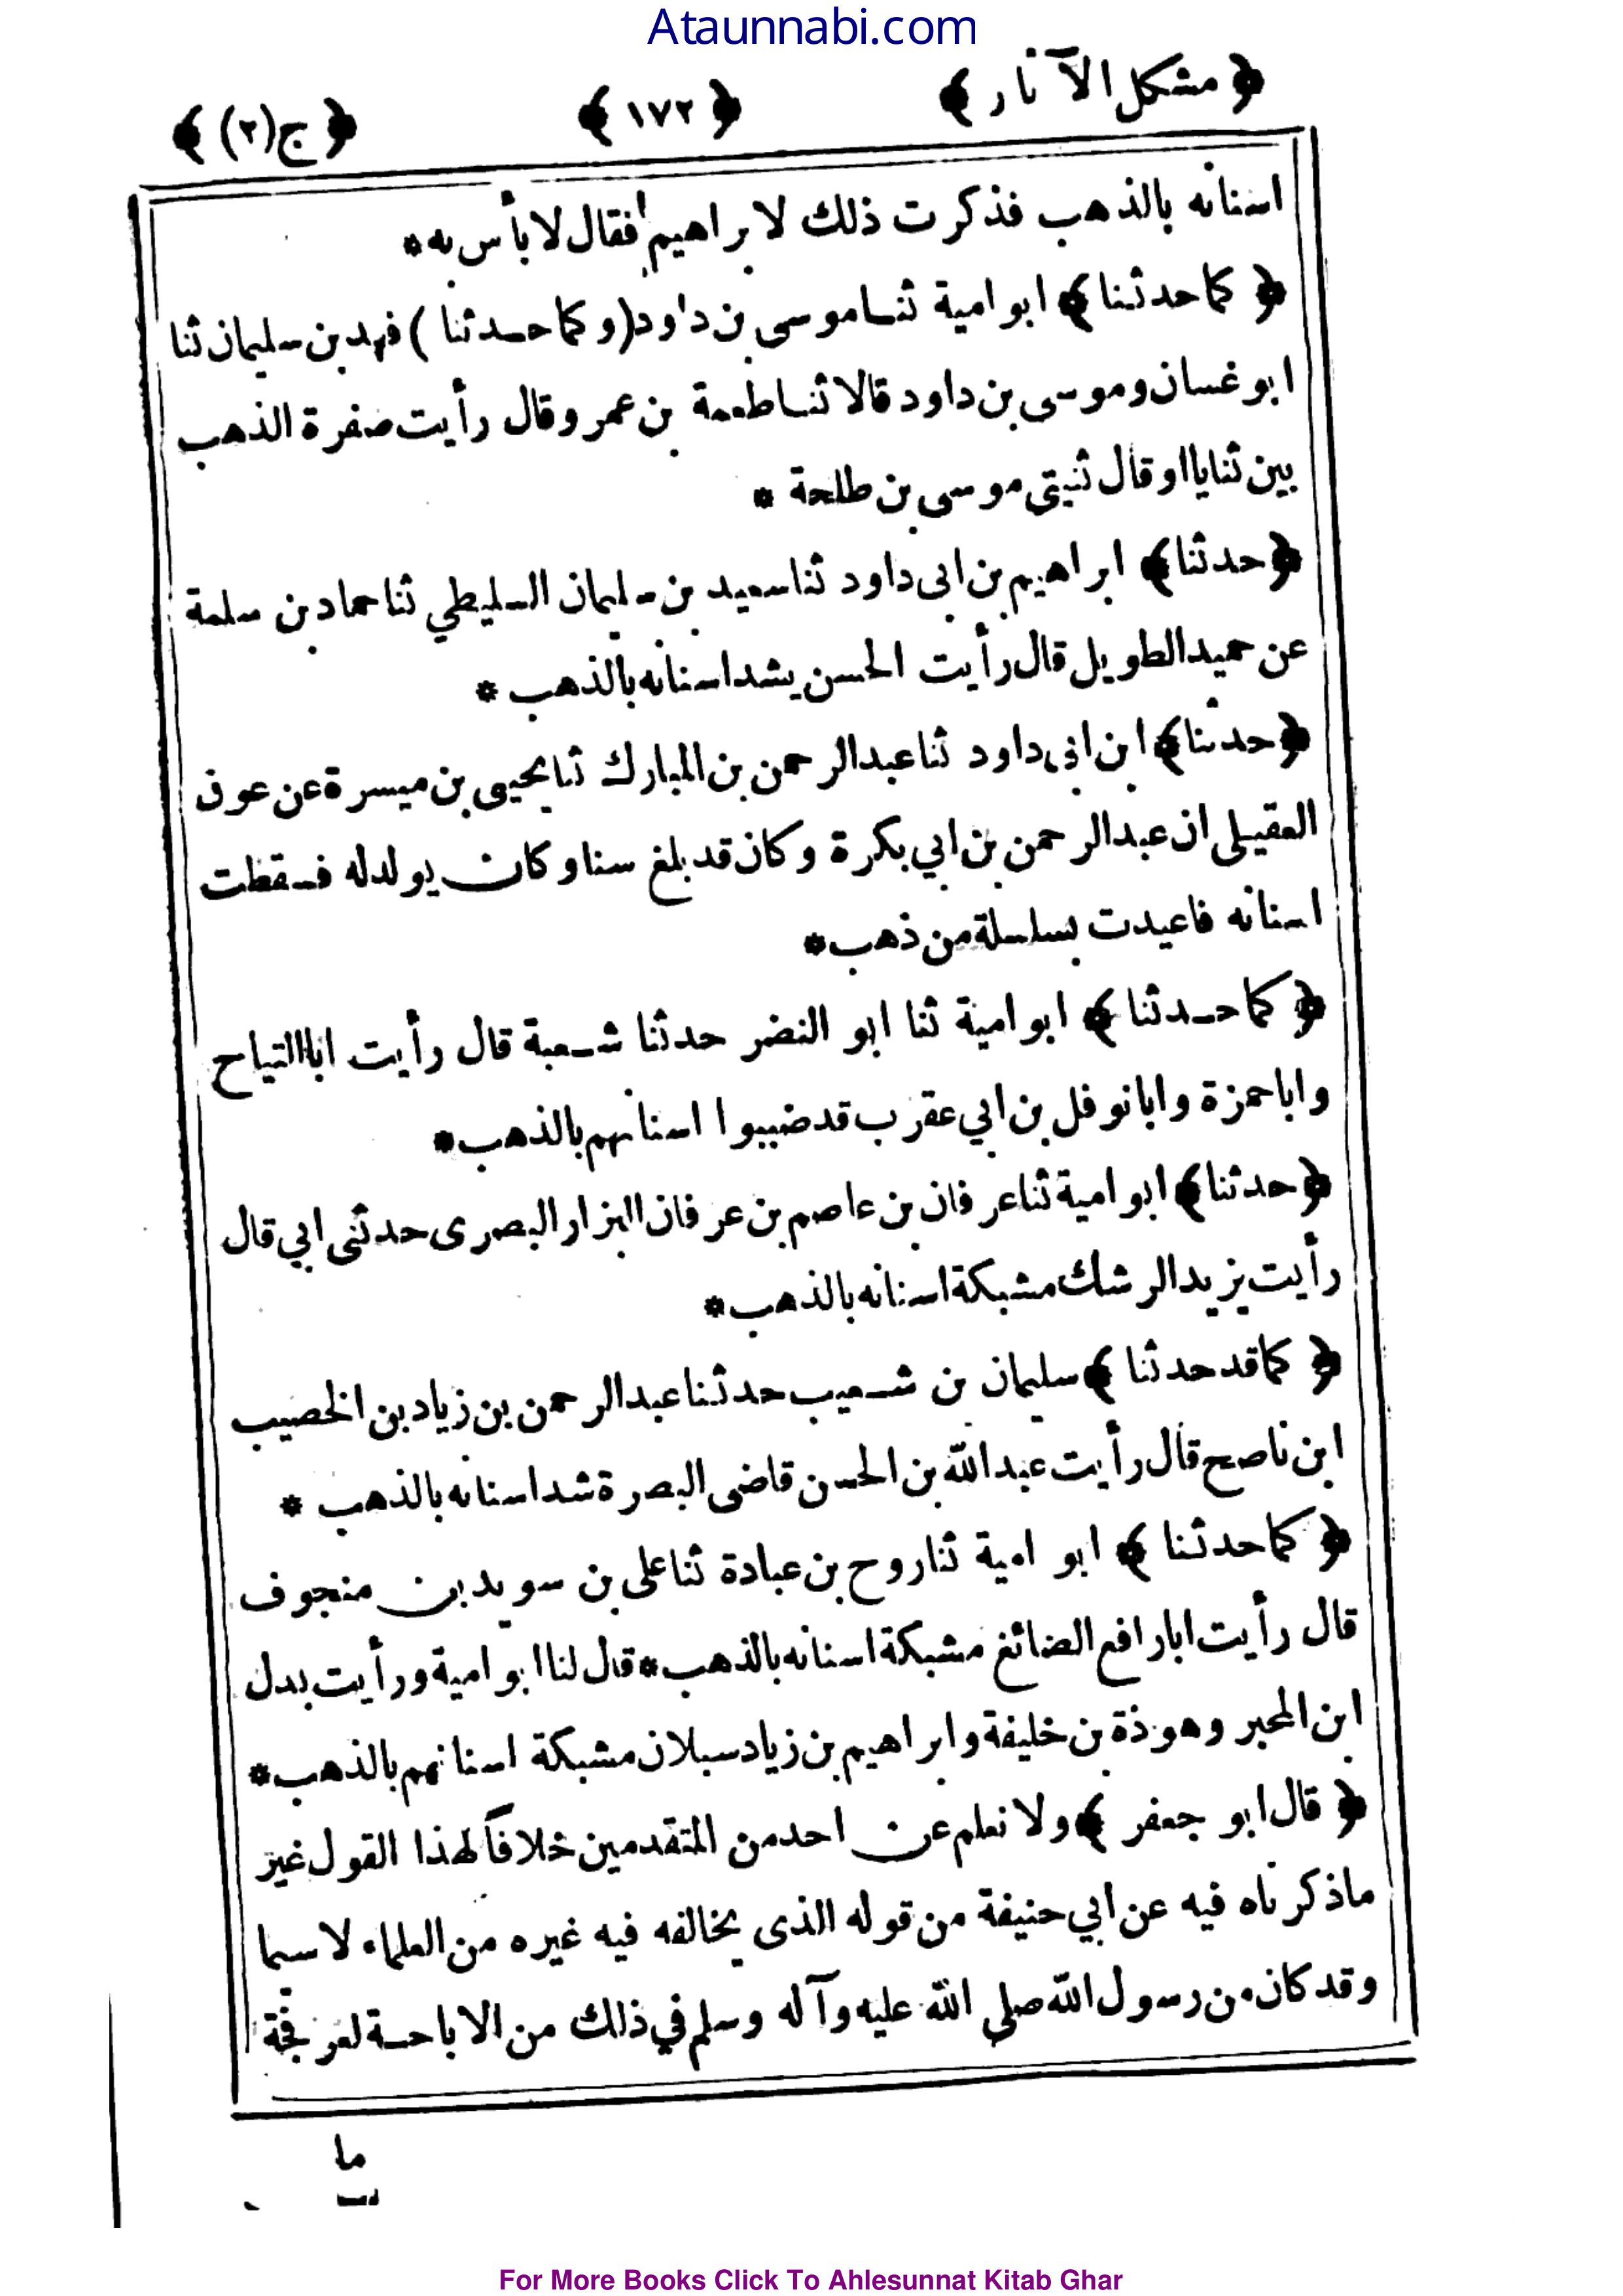 Ataunnabi.com
﴿ مشكل الآثار ﴾ ﴿ ١٧٢ ﴾ ﴿ ج (٢) ﴾
اسنانه بالذهب فذكرت ذلك لابراهيم فقال لا بأس به *
﴿ كما حدثنا ﴾ ابو امية ثنا موسى بن داود ( و كما حدثنا ) فهد بن سليمان ثنا
ابو غسان وموسى بن داود قالا ثنا طعمة بن عمر و قال رأيت صفرة الذهب
بين ثنايا او قال ثنيتي موسى بن طلحة *
﴿ حدثنا ﴾ ابراهيم بن ابى داود ثنا سعيد بن سليمان السليطي ثنا حماد بن سلمة
عن حميد الطويل قال رأيت الحسن يشد اسنانه بالذهب *
﴿ حدثنا ﴾ ابن ابى داود ثنا عبد الرحمن بن المبارك ثنا يحيى بن ميسرة عن عوف
العقيلى ان عبد الرحمن بن ابي بكرة و كان قد بلغ سنا و كان يولد له فسقطت
اسنانه فاعيدت بسلسلة من ذهب *
﴿ كما حدثنا ﴾ ابو امية ثنا ابو النضر حدثنا شعبة قال رأيت ابا التياح
و ابا حمزة و ابا نوفل بن ابي عقرب قد ضببوا اسنانهم بالذهب *
﴿ حدثنا ﴾ ابو امية ثنا عرفان بن عاصم بن عرفان البزار البصرى حدثنى ابي قال
رأيت يزيد الرشك مشبكة اسنانه بالذهب *
﴿ كما قد حدثنا ﴾ سليمان بن شعيب حدثنا عبد الرحمن بن زياد بن الخصيب
ابن ناصح قال رأيت عبد الله بن الحسن قاضى البصرة شد اسنانه بالذهب *
﴿ كما حدثنا ﴾ ابو امية ثنا روح بن عبادة ثنا على بن سويد بن منجوف
قال رأيت ابا رافع الضائغ مشبكة اسنانه بالذهب * قال لنا ابو امية ورأيت بدل
ابن المحبر وهوذة بن خليفة و ابراهيم بن زياد سبلان مشبكة اسنانهم بالذهب *
﴿ قال ابو جعفر ﴾ ولا نعلم عن احد من المتقدمين خلافاً لهذا القول غير
ما ذكرناه فيه عن ابي حنيفة من قوله الذى يخالفه فيه غيره من العلماء لا سيما
و قد كان من رسول الله صلى الله عليه وآله وسلم في ذلك من الاباحة لعرفجة
ما
For More Books Click To Ahlesunnat Kitab Ghar